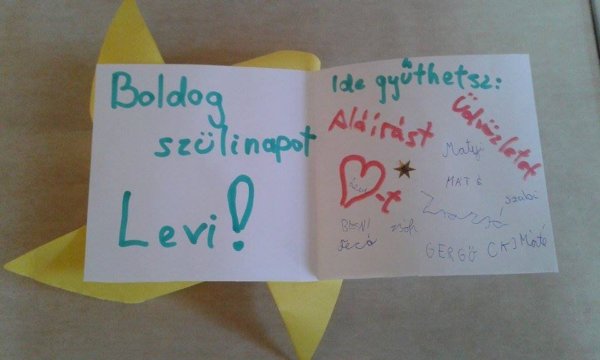 Boldog
szülinapot
Levi!
Ide gyűthetsz:
Aláírást
Üdvözletet
-t
Matyi
MKT S
Szabi
Zsazsó
BENI
Zsolt
GERGŐ CKJ Máté